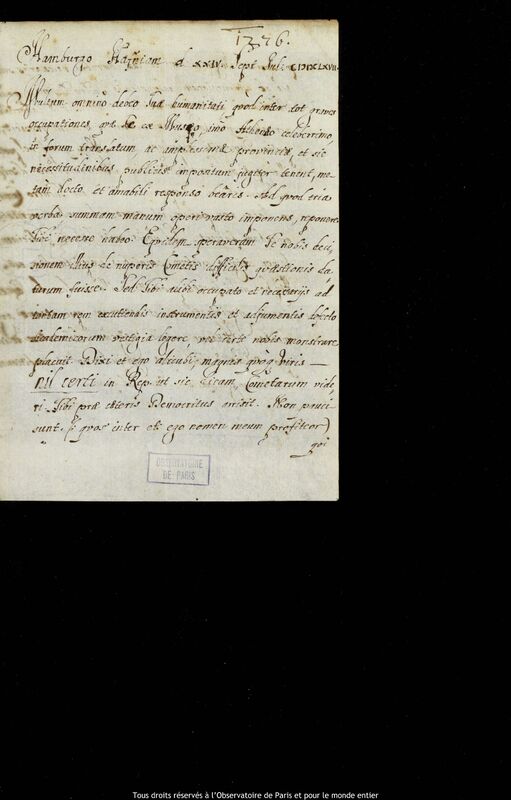 1376.
Hamburgo Hafniam d XXIV. Sept Jul: CIƆIƆCLXVII.
Multum omnino debeo Tuæ humanitati quod inter tot graves
occupationes, quæ Te ex Museo imo Athenæo celeberrimo
in forum translatum, ac amplissimæ provinciæ, et sic
necessitudinibus publicis impositum jugiter tenent, me
tam docto et amabili responso beares. Ad quod etiam
verba, summam manum operi vasto imponens, reponere
Tibi necesse habeo. Equidem speraveram Te nobis deci
sionem illius de nuperis Cometis difficilis quæstionis da
turum fuisse. Sed Tibi alibi occupato et necessarijs ad
tantam rem excutiendis instrumentis et adjumentis
Academicorum vestigia legere, vel certe nobis monstrare,
placuit. Dixi et ego alicubi, magnis quoque Viris
nil certi in Rep. ut sic dicam, Cometarum vide
ri. Tibi præ cæteris Democritus arrisit. Non pauci
sunt (quos inter et ego nomen meum profiteor)
qui
OBSERVATOIRE
DE PARIS
Tous droits réservés à l'Observatoire de Paris et pour le monde entier